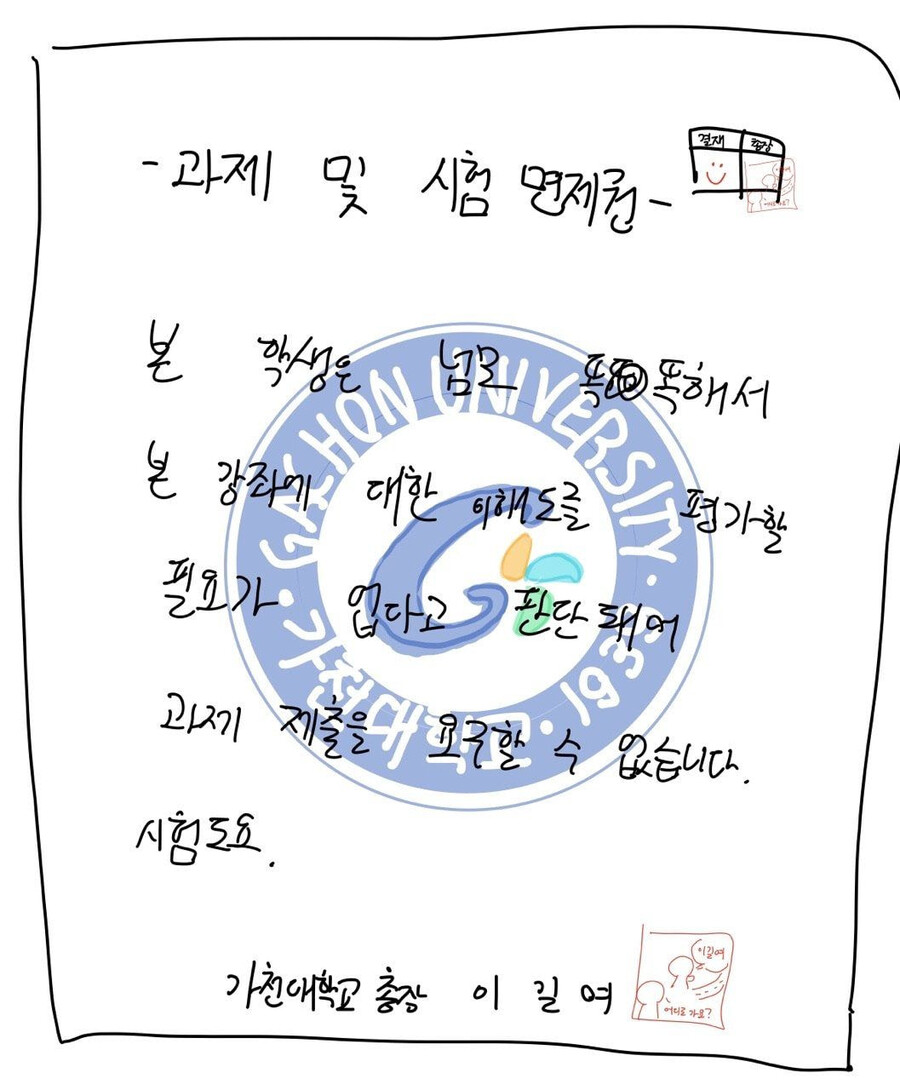 - 과제 및 시험 면제권 -
결재 총장
본 학생은 넘모 똑똑해서
본 강좌에 대한 이해도를 평가할
필요가 없다고 판단돼어
과제 제출을 요구할 수 없습니다.
시험도요.
GACHON UNIVERSITY · 1939 · 가천대학교 ·
가천대학교 총장 이 길 여
이길여
어디로 가요?